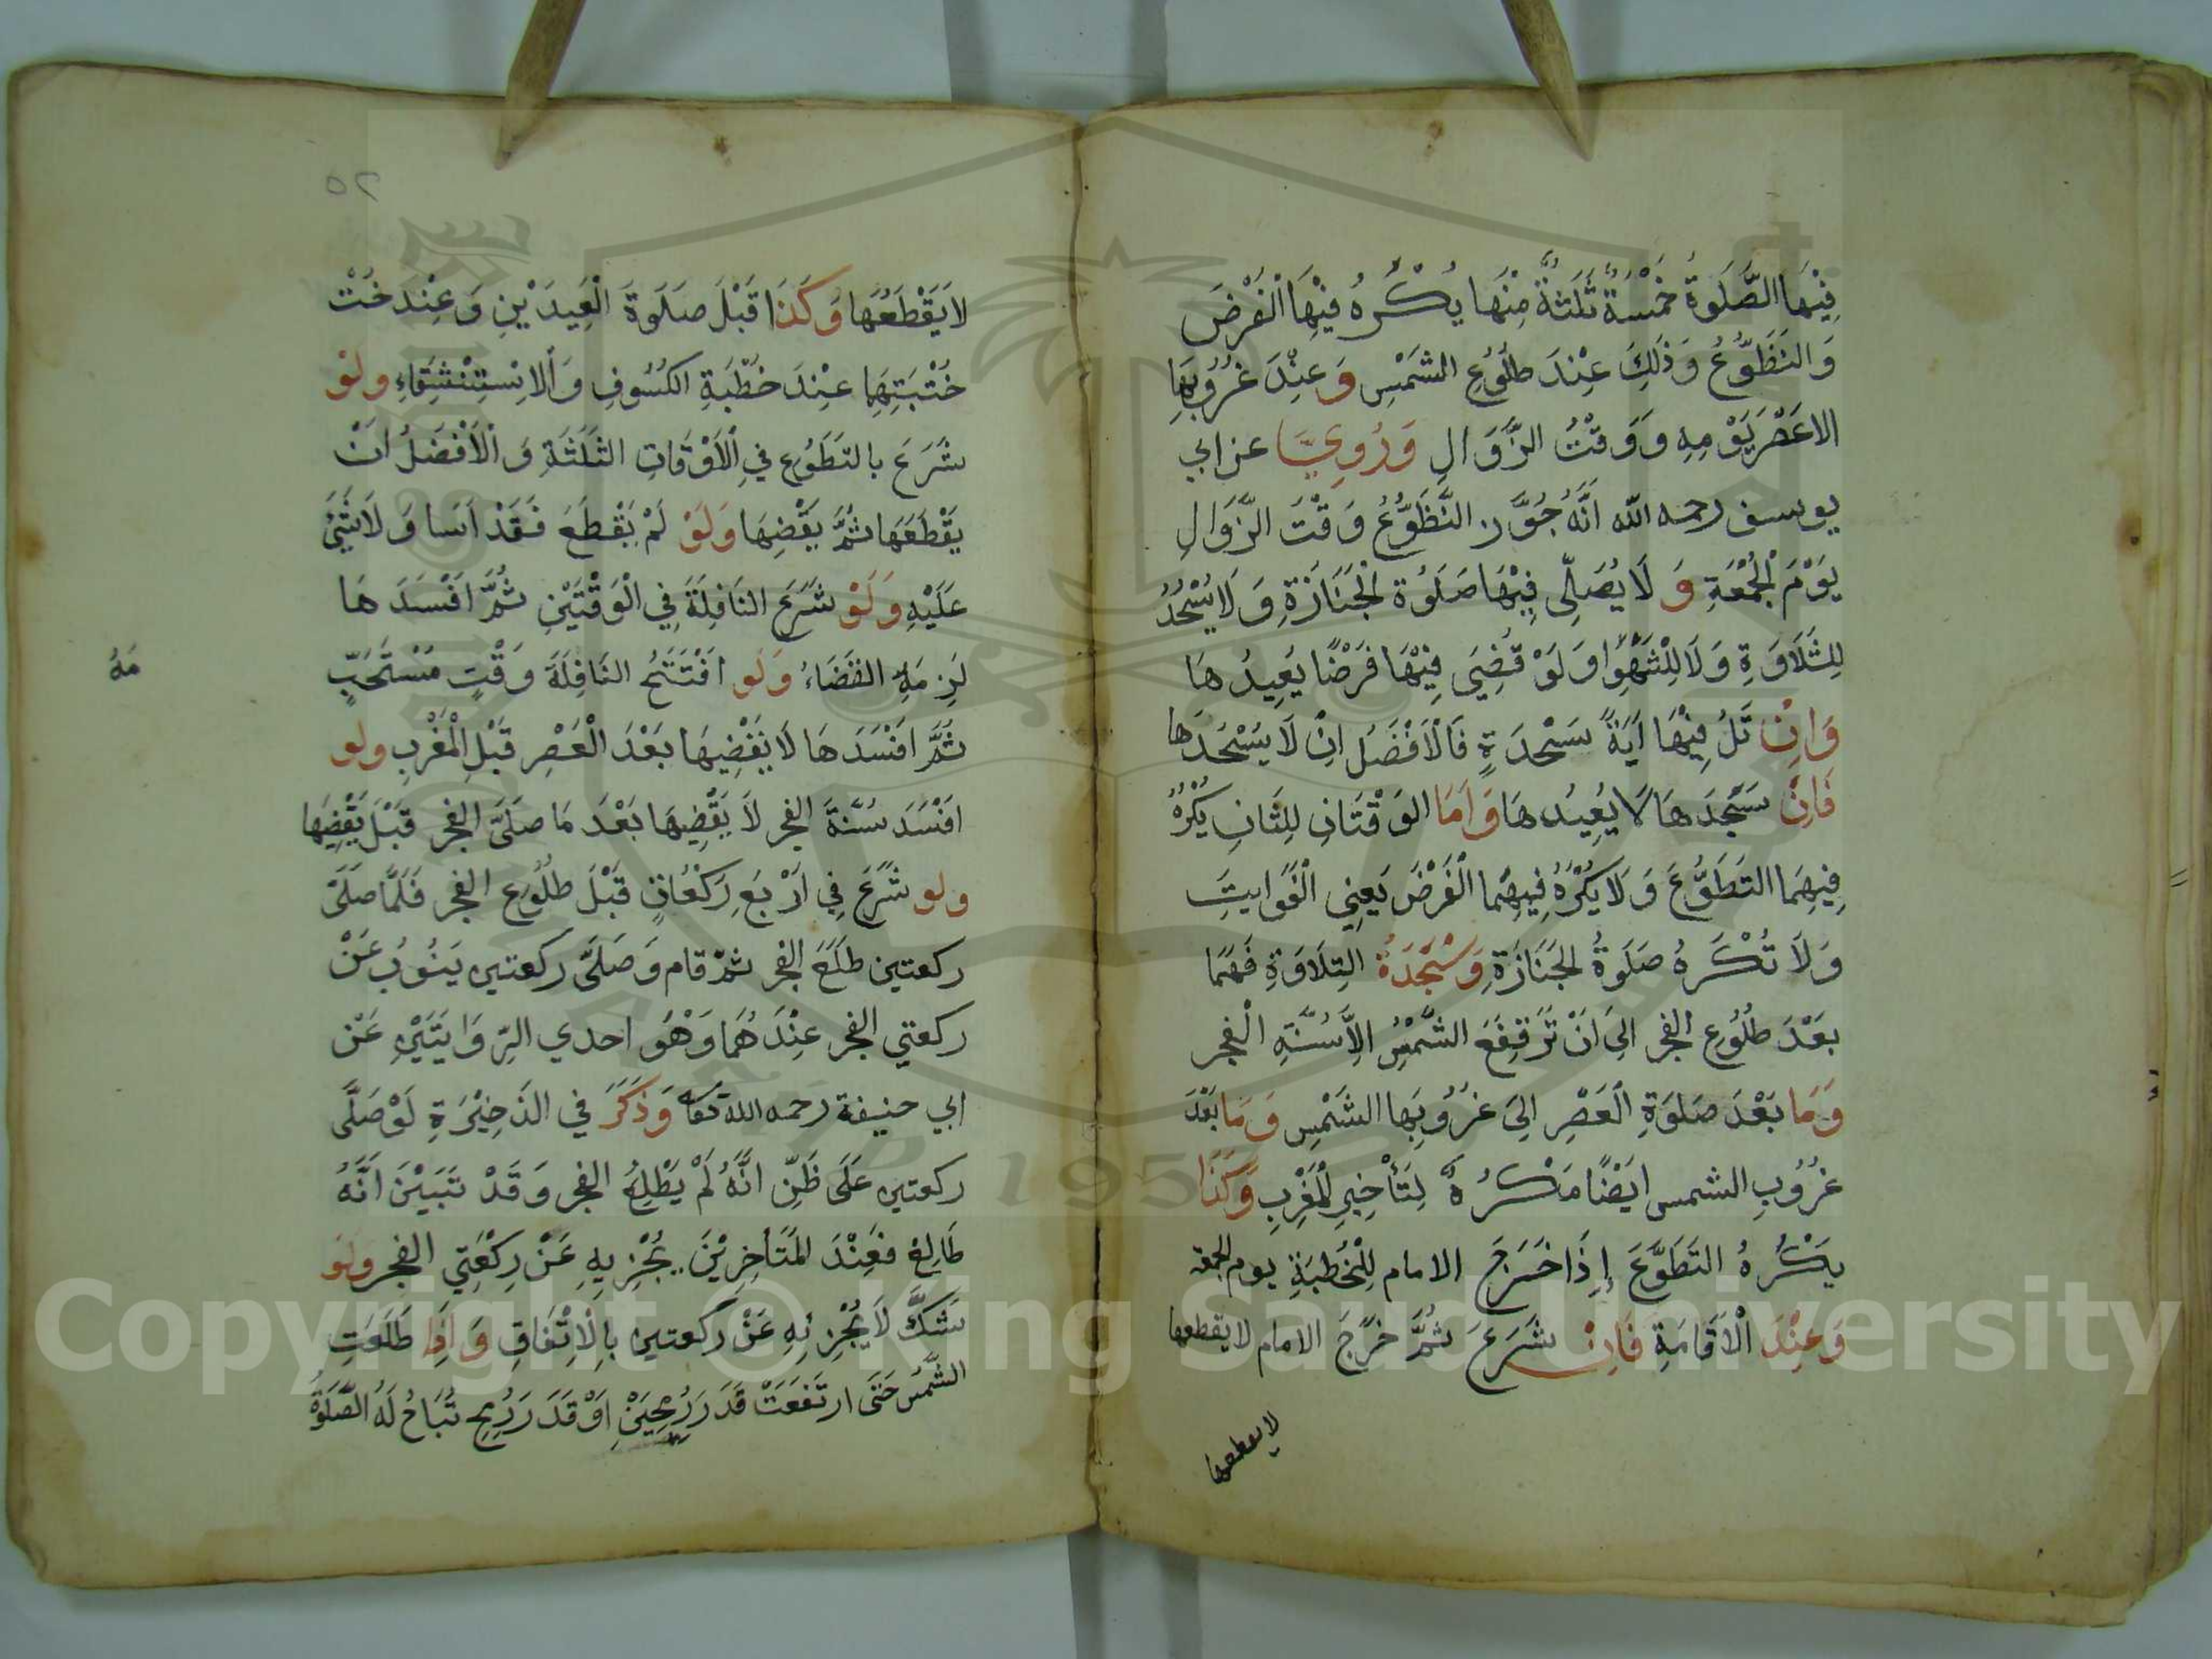 فِيْهَا الصَّلَوةُ خَمْسَةٌ ثَلَثَةٌ مِنْهَا يُكْرَهُ فِيْهَا الْفَرْضَ
وَالتَطَوُّعُ وَذَلِكَ عِنْدَ طُلُوُعِ الشَمْسِ وَعِنْدَ غُرُوُبِهَا
الاعَصْرَيَوْمِهِ وَوَقْتُ الزَّوَالِ وَرُوِيَ عن ابي
يوسف رحمه الله اَنَّهُ جُوَّز التَّطَوُّعُ وَقْتَ الزَّوَالِ
يَوْمَ الْجُمْعَةِ وَلَا يُصَلِّى فِيْهَا صَلَوُةَ الْجَنَازَةِ وَلَا يُسْجُدُ
لِلتَّلَاوَةِ وَلَا لِلسَّهْوِ وَلَوْ قُضِيَ فِيْهَا فَرْضًا يُعِيدُهَا
وَاِنْ تَلُ فِيْهَا اَيَةً سَجْدَةٍ فَالْاَفْضَلُ اِنْ لَا يَسْجُدَهَا
فَاِنْ سَجَدَهَا لَا يُعِيدُهَا وَاَمَا الوَقْتَانِ لِلثَانِ يُكْرَهُ
فِيهِمَا التَطَوُّعَ وَلَا يُكْرَهُ فِيهِمَا الْفَرْضَ يَعْنِي الْفَوَايتِ
وَلَا تُكْرَهُ صَلَوةُ الجَنَازَةِ وَسَجْدَةُ التِلَاوَةِ فَهُمَا
بَعْدَ طُلُوُعِ الفجر الِىَ اَنْ تَرْتَفِعَ الشَّمْسُ الِاَّ سُنَّةِ الْفجر
وَمَا بَعْدَ صَلوَةِ الْعَصْرِ الِىَ غُرُوُبِهَا الشَمْسِ وَمَا بَعْدَ
غُرُوُبِ الشمس اَيضًا مَكْرُهٌ لِتَأْخِيرِ الْمَغْرِبِ وَكَذَا
يَكْرُهُ التَطَوَّعَ إِذَا خَرَجَ الامام لِلْخُطْبَةِ يوم الجمعه
وَعِنْدَ الْاَقَامَةِ فَاِنْ شَرَعَ ثُمَّ خَرَجَ الامام لا يقطعها
لا يقطعها
٥٢
لَا يَقْطَعُهَا وَكَذَا قَبْلَ صَلَوَةَ الْعِيدَيْنِ وَعِنْدَ خُتْ
خُتْبَتِهِمَا عِنْدَ خُطْبَةِ الكُسُوفِ وَالاِسْتِنْشِقَاءِ ولَوْ
شَرَعَ بالتَطَوُع فيِ الْاَوْقَاتِ الثَلَثَةِ وَالْاَفْضَلُ اَنْ
يَقْطَعَهَا ثُمَّ يَقْضِهَا وَلَوْ لَمْ يَقْطَعَ فَقَدْ اَسَا وَلَا شَيْئَ
عَلَيْهِ وَلَوْ شَرَعَ النَافِلَةَ فِي الْوَقْتَيْنِ ثُمَّ اَفْسَدَهَا
لَزِمَهِ القَضَاءُ وَلَو اَفْتَتَحُ النَافِلَةَ وَقْتٍ مُسْتَحَبٍّ
مَهُ
ثُمَّ اَفْسَدَهَا لَا يَقْضِيهَا بَعْدَ الْعَصْرِ قَبْلِ الْمَغْرِبِ ولو
اَفْسَدَ سُنَّةَ الفجر لَا يَقْضِيهَا بَعْدَ مَا صَلَىَّ الفجر قَبْلَ يَقْضِيَهَا
ولو شَرَعَ فِي اَرْبَعِ رَكْعَاتٍ قَبْلَ طُلُوُعِ الفجر فَلَمَّا صَلَىَّ
ركعتين طَلَعَ الفجر ثمّ قام وَصَلَىَّ ركعتين يَنُوُبُ عَنْ
ركعتي الفجر عِنْدَهُمَا وَهْوَ احدي الرِّوَايَتَيْنِ عَنْ
ابي حنيفة رحمه الله تعا وَذَكَرَ في الذَخِيْرَةِ لَوْ صَلَّى
ركعتين عَلَى ظَنِّ انَّهُ لَمْ يَطْلِعُ الفجر وَقَدْ تَبَيَنَ اَنَّهُ
طَالِعٌ فَعِنْدَ المُتَاَخِرِيْنَ يُجْزِيهِ عَنْ رِكْعَتِي الفجر ولو
شَكَّ لَا يُجْزِئهِ عَنْ ركعتين بِالْاِتْفَاقِ وَاِذَا طَلَعَتِ
الشَّمْسُ حَتَى ارتَفَعَتْ قَدَرَ رُمْحِيَنْ اَوْ قَدَرَ رُمحٍ تُبَاحُ لَهُ الصَّلَوةُ